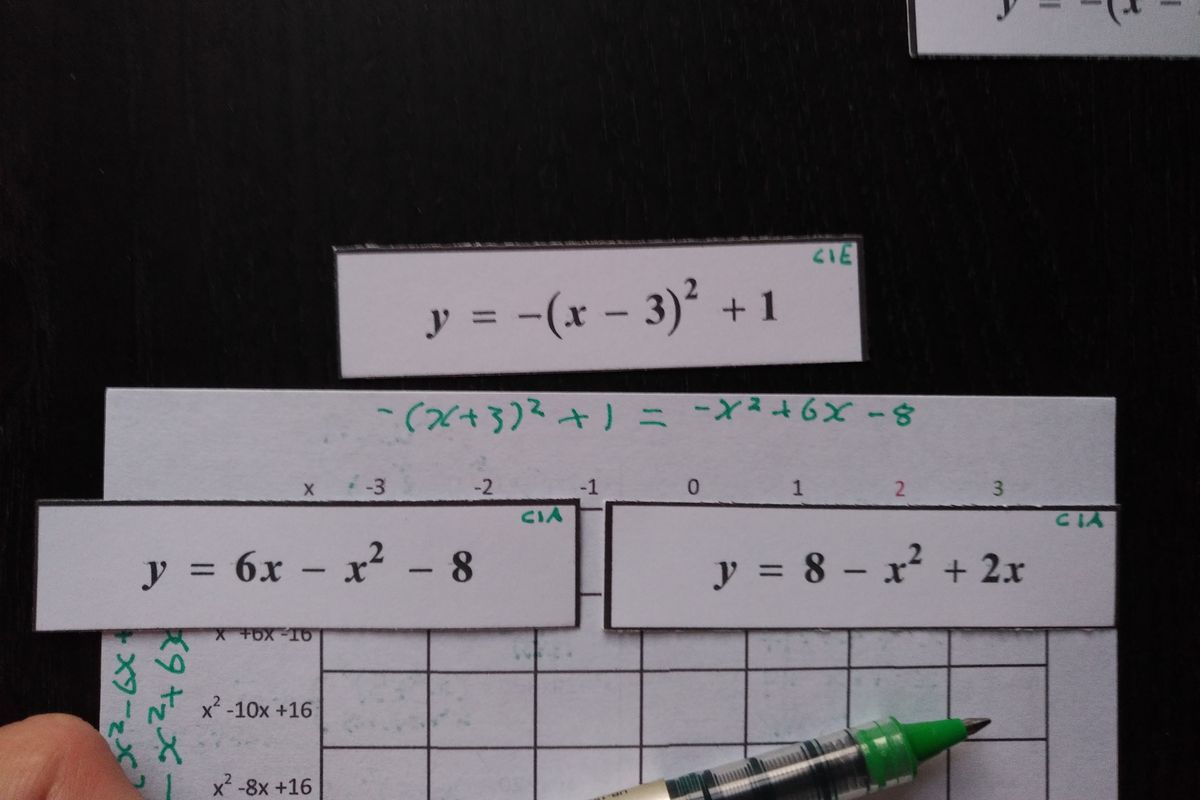 y = -(x -
C1E
y = -(x - 3)² + 1
-(x+3)² + 1 = -x² + 6x - 8
x -3 -2 -1 0 1 2 3
C1A
y = 6x - x² - 8
C1A
y = 8 - x² + 2x
x² - 6x +
- x² + 6x
x² -10x +16
x² -8x +16